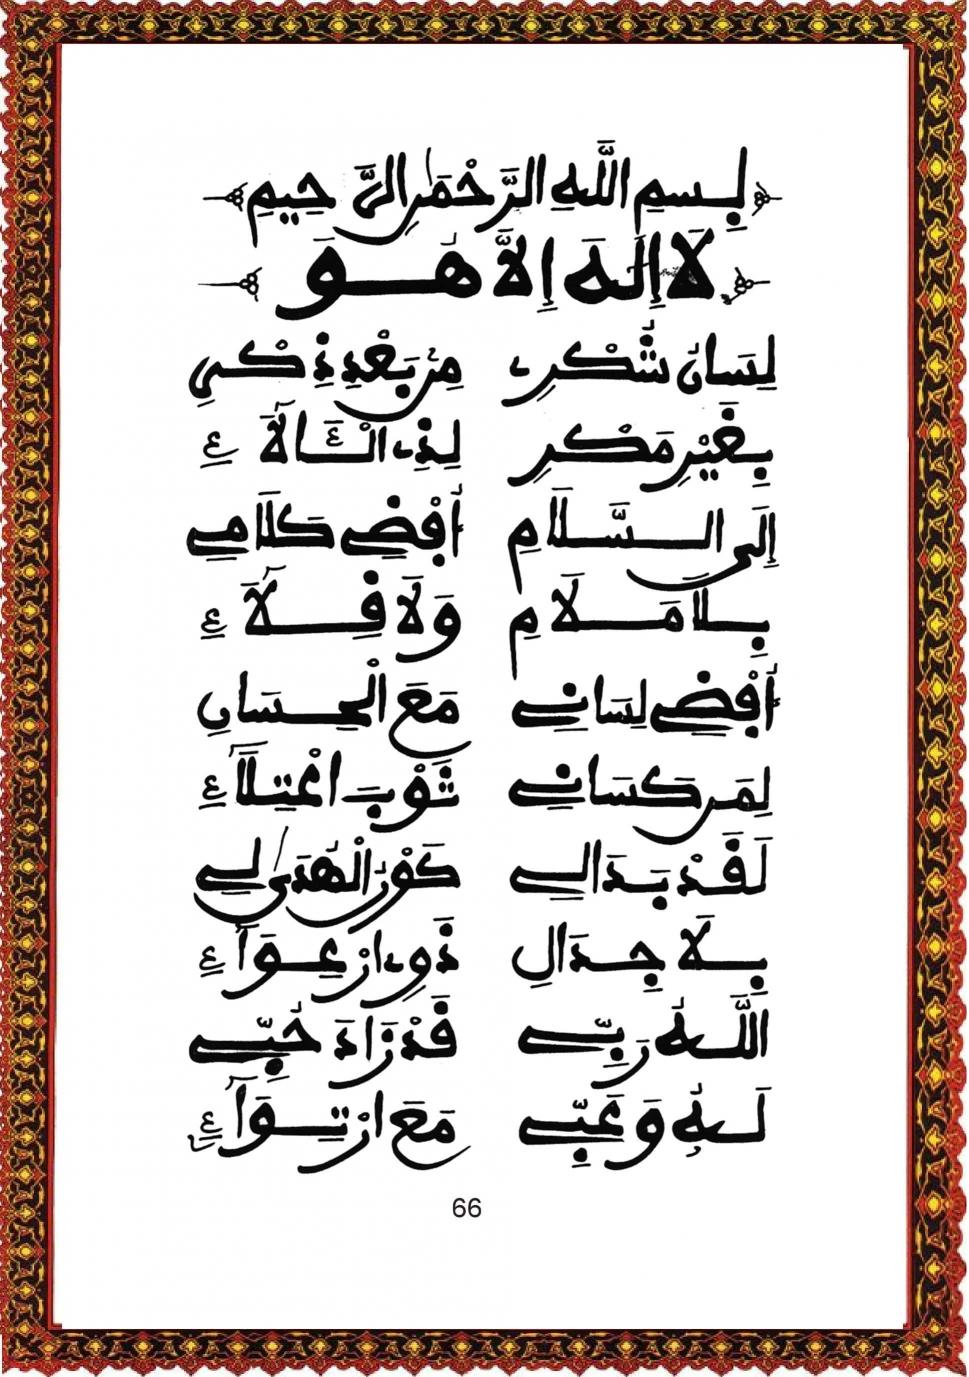 بِسْمِ اللَّهِ الرَّحْمَٰنِ الرَّحِيمِ
لَا إِلَٰهَ إِلَّا هُوَ
لِسَانُ شُكْرِے مِنْ بَعْدِ ذِكْرِي
بِغَيْرِ مَكْرِ لِذِے
إِلَى السَّلَامِ أَفْضَى كَلَامِي
بِلَا مَلَامِ وَلَا قِلَآءِ
أَفْضَى لِسَانِي مَعَ الْحِسَانِ
لِمَنْ كَسَانِي ثَوْبَ اعْتِلَآءِ
لَقَدْ بَدَا لِي كَوْنُ الْهُدَىٰ لِي
بِلَا جِدَالِ ذَوِے ارْعِوَآءِ
اللَّهُ رَبِّي قَدْ زَادَ حُبِّي
لَهُ وَعَبِّي مَعَ ارْتِوَآءِ
66